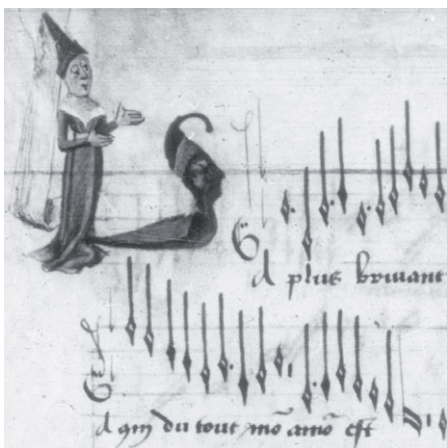 a plus bruiant
a qui du tout mō amō est